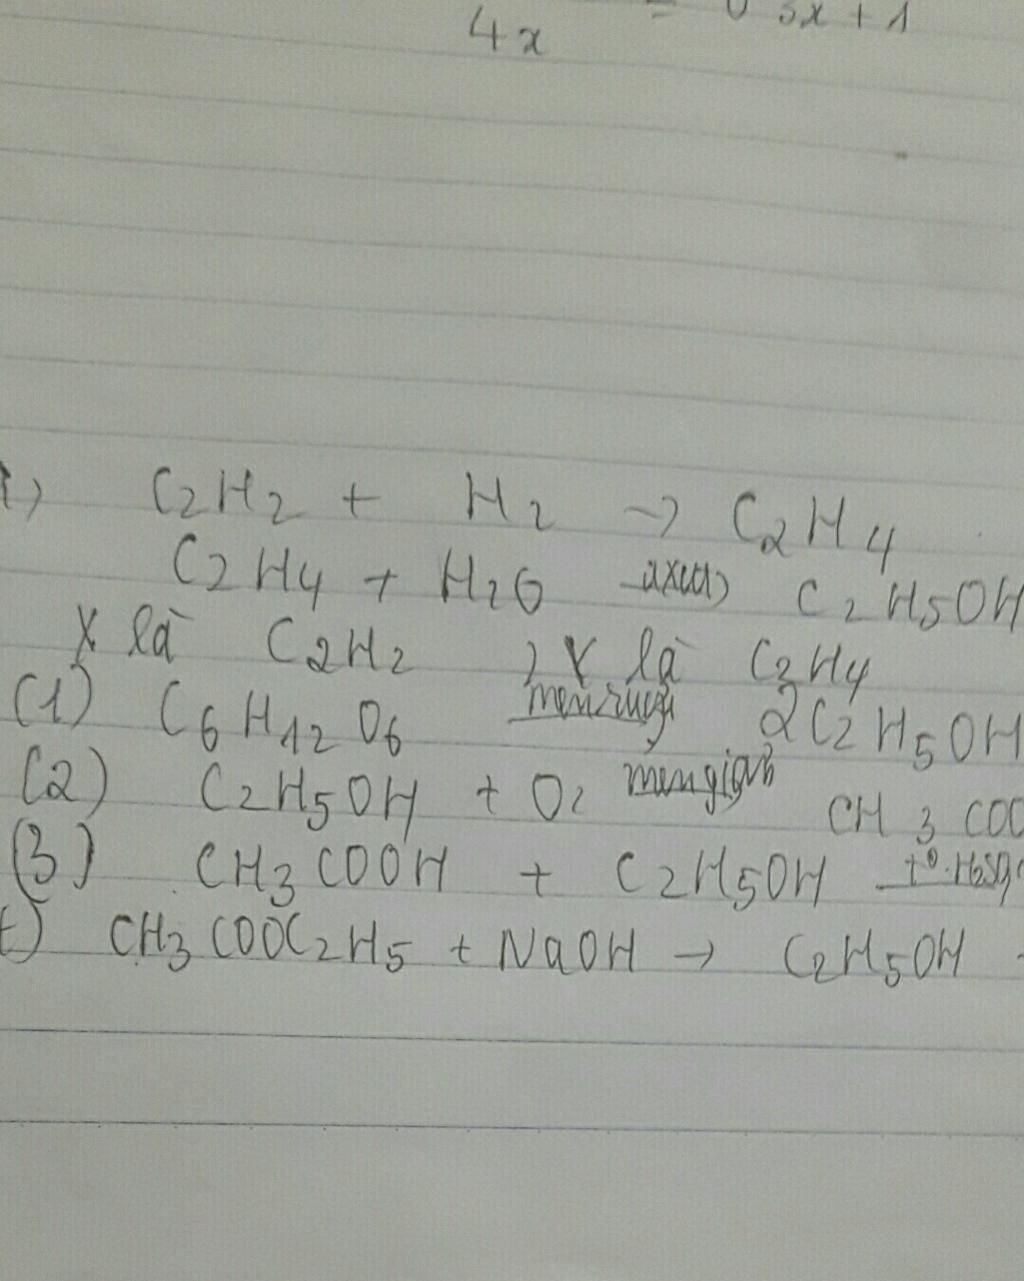 4x = 0 5x + 1
C2H2 + H2 → C2H4
C2H4 + H2O axit→ C2H5OH
X là C2H2 , Y là C2H4
(1) C6H12O6 men rượu 2C2H5OH
(2) C2H5OH + O2 men giấm CH3COO
(3) CH3COOH + C2H5OH t° H2SO
CH3COOC2H5 + NaOH → C2H5OH